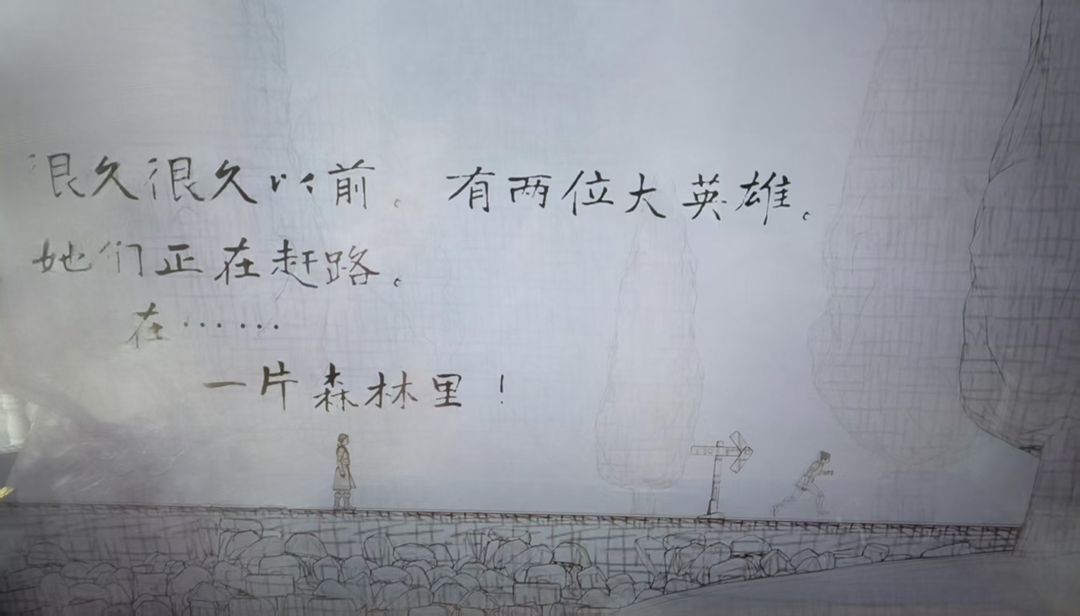 很久很久以前。有两位大英雄。
她们正在赶路。
在……
一片森林里！